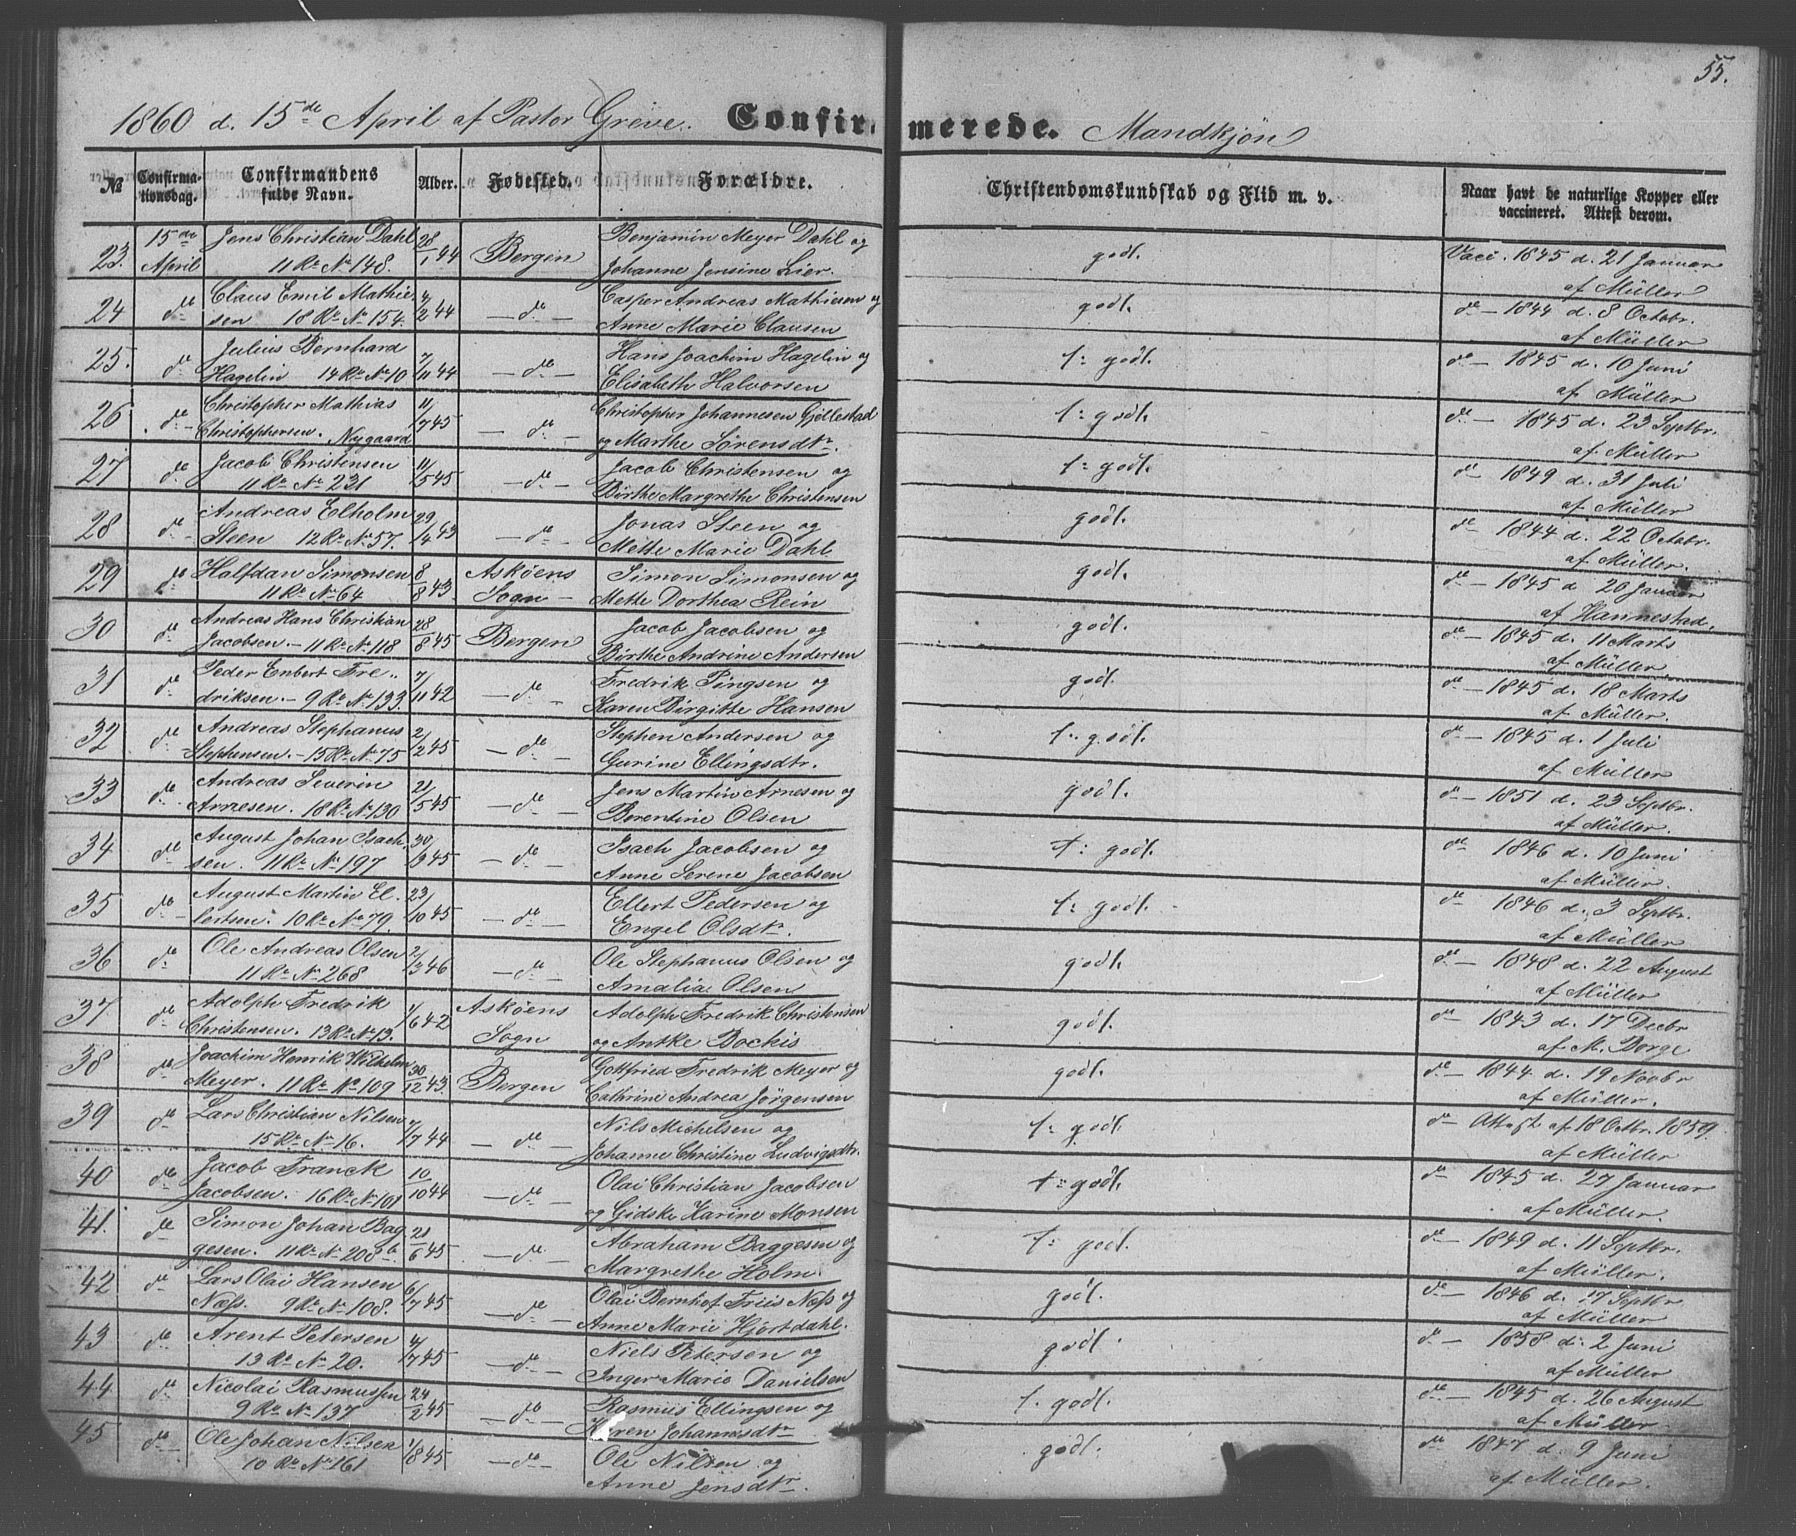 55.
1860 d. 15de April af Pastor Greve. Confirmerede. Mandkjøn
No Confirmationsdag. Confirmandens fulde Navn. Alder. Fødested. Forældre. Christendomskundskab og Flid m. v. Naar havt de naturlige Kopper eller vaccineret. Attest derom.
23. 15de Jens Christian Dahl 28/1 44 Bergen Benjamin Meyer Dahl og godt. Vacc. 1845 d. 21 Januar
April 11 Rd No 148. Johanne Jensine Lier. af Müller
24 do Claus Emil Mathie 9/2 44 — do — Casper Andreas Mathiesen og godt. do — 1844 d. 8 Octobr.
sen 18 Rd No 154. Anne Marie Clausen af Müller
25. do Julius Bernhard 7/11 44 — do — Hans Joachim Hagelin og t: godt. do — 1845 d. 10 Juni
Hagelin 14 Rd No 10 Elisabeth Halvorsen af Müller
26 do Christopher Mathias 11/7 45 — do — Christopher Johannesen Gjellestad t: godt. do — 1845 d. 23 Septbr.
Christophersen. Nygaard og Marthe Sørensdtr. af Müller
27 do Jacob Christensen 11/5 45 — do — Jacob Christensen og t: godt. do — 1849 d. 31 Juli
11 Rd No 231 Birthe Margrethe Christensen af Müller
28 do Andreas Elholm 29/4 43 — do — Jonas Steen og godt. do — 1844 d. 22 Octobr.
Steen 12 Rd No 57. Mette Marie Dahl af Müller.
29 do Halfdan Simonsen 8/8 43 Askøens Simon Simonsen og godt. do — 1845 d 20 Januar
11 Rd No 64 Sogn — Mette Dorthea Rein af Hannestad.
30 do Andreas Hans Christian 28/8 45 Bergen Jacob Jacobsen og godt. do — 1845 d. 11 Marts
Jacobsen. — 11 Rd No 118 Birthe Andrine Andersen af Müller
31 do Peder Enbert Fre 7/11 42 — do — Fredrik Pingsen og godt. do — 1845 d. 18 Marts
driksen. — 9 Rd No 133. Karen Birgitte Hansen af Müller.
32 do Andreas Stephanus 2/2 45 — do — Stephen Andersen og t: godt. do — 1845 d. 1 Juli
Stephensen. — 15 Rd No 75 Gurine Ellingsdtr. af Müller
33 do Andreas Severin 21/5 45 — do — Jens Martin Arnesen og godt. do — 1851 d. 23 Septbr.
Arnesen. 18 Rd No 130 Berentine Olsen af Müller.
34 do August Johan Isach 30/9 45 — do — Isach Jacobsen og t: godt. do 1846 d. 10 Juni
sen. 11 Rd No 197 Anne Serene Jacobsen af Müller.
35 do August Martin El 23/10 45 — do — Ellert Pedersen og t: godt. do 1846 d. 3 Septbr.
lertsen. 10 Rd No 79. Engel Olsdtr. af Müller
36 do Ole Andreas Olsen 2/3 46 — do — Ole Stephanus Olsen og godt. do — 1848 d. 22 August
11 Rd No 268 Amalia Olsen af Müller
37 do Adolph Fredrik 1/6 42 Askøens Adolph Fredrik Christensen godt. do — 1843 d. 17 Decbr
Christensen. 13 Rd No 13. Sogn og Antke Bochis af M. Borge
38 do Joachim Henrik Wilhelm 30/12 43. Bergen Gottfried Fredrik Meyer og godt. do — 1844 d. 19 Novbr
Meyer. 11 Rd No 109 Cathrine Andrea Jørgensen af Müller.
39 do Lars Christian Nilsen 7/7 44 — do — Nils Michelsen og t: godt. do — Attest af 18 Octbr. 1859.
15 Rd No 16. Johanne Christine Ludvigsdtr. af Müller
40 do Jacob Franck 10/10 44 — do — Olai Christian Jacobsen t: godt. do — 1845 d. 27 Januar
Jacobsen. 16 Rd No 101 og Gidske Karine Monsen af Müller.
41. do Simon Johan Bag 21/6 45 — do — Abraham Baggesen og t: godt. do — 1849 d. 11 Septbr.
gesen. 11 Rd No 208 b. Margrethe Holm. af Müller.
42 do Lars Olai Hansen 6/7 45 — do — Olai Bernhof Friis Næss og godt. do — 1846 d. 17 Septbr
Næss. 9 Rd No 108. Anne Marie Hjortdahl. af Müller
43 do Arent Petersen 4/7 45 — do — Niels Petersen og godt. do — 1858 d. 2 Juni
13 Rd No 20. Inger Marie Danielsen af Müller
44 do Nicolai Rasmussen 24/2 45 — do — Rasmus Ellingsen og t. godt. do — 1845 d. 26 August
9 Rd No 137 Karen Johannesdtr af Müller
45 do Ole Johan Nilsen 1/8 45 — do — Ole Nilsen og godt. do 1847 d. 9 Juni
10 Rd No 161 Anne Jensdtr. af Müller.